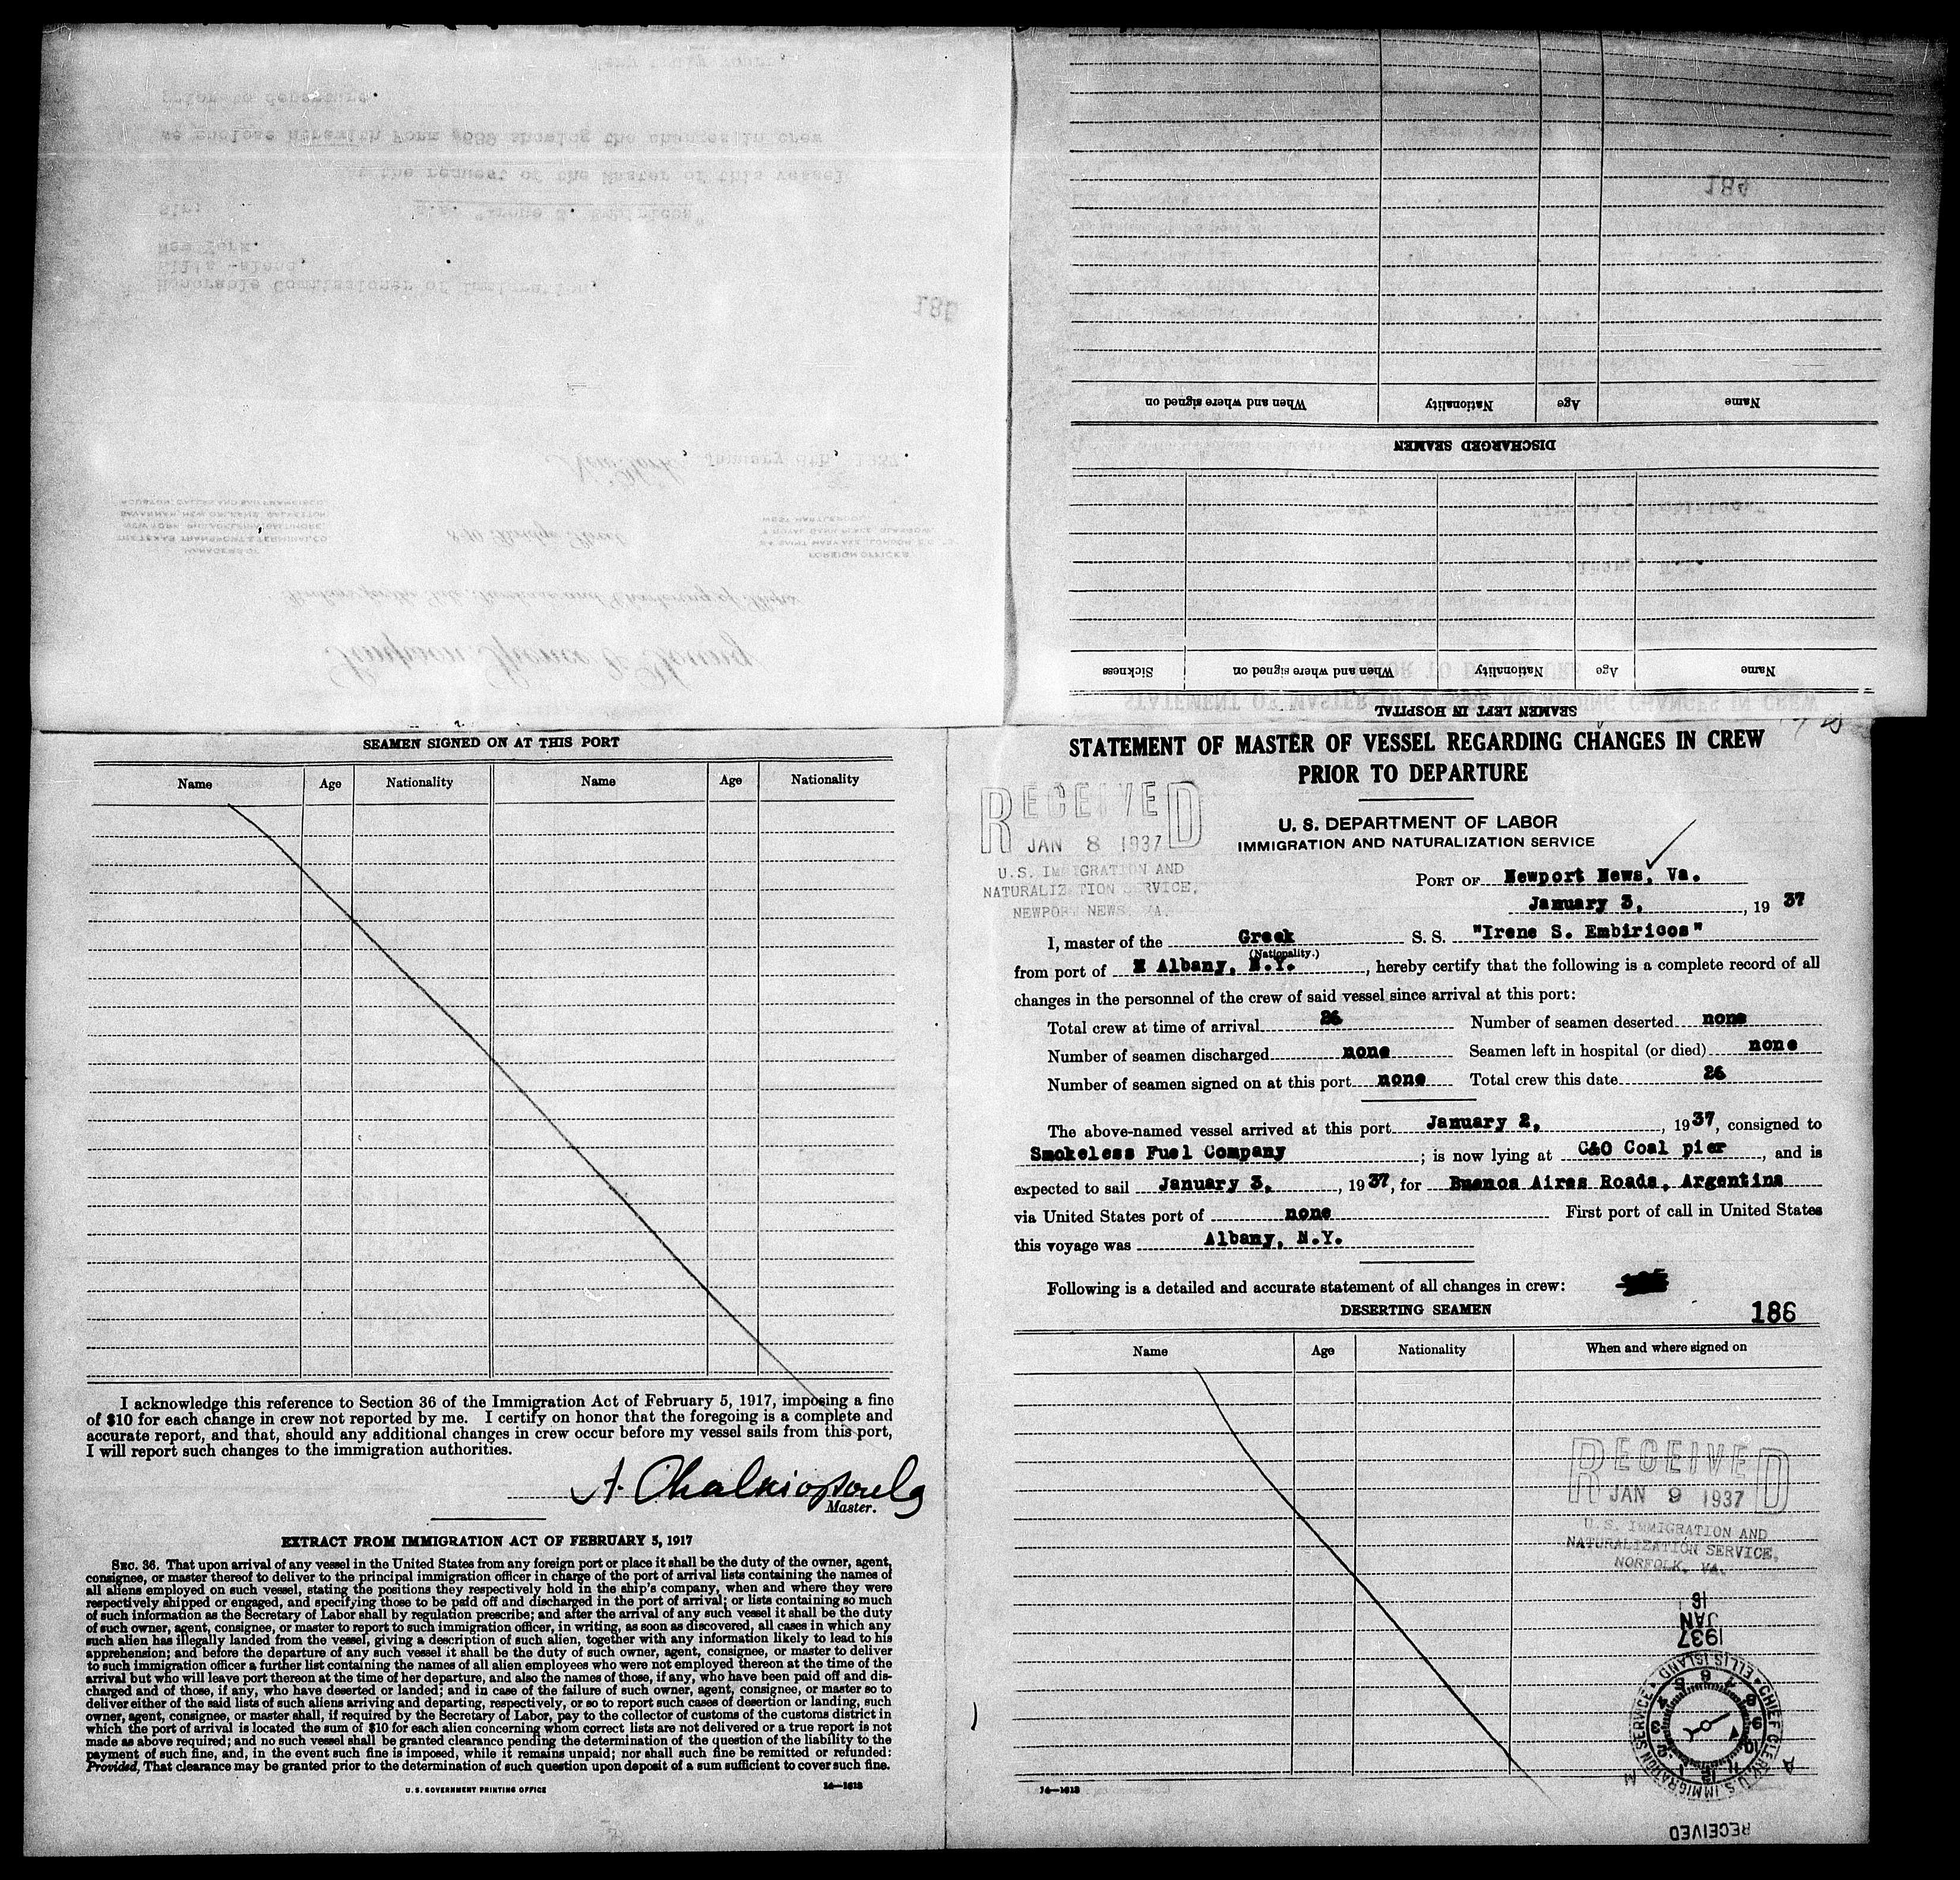 we enclose herewith Form #689 showing the changes in crew
prior to departure.
the request of the Master of this vessel
Sir:
New York.
Honorable Commissioner of Immigration,
184
Name Age Nationality When and where signed on
DISCHARGED SEAMEN
Name Age Nationality When and where signed on Sickness
SEAMEN LEFT IN HOSPITAL
SEAMEN SIGNED ON AT THIS PORT
Name Age Nationality Name Age Nationality
I acknowledge this reference to Section 36 of the Immigration Act of February 5, 1917, imposing a fine
of $10 for each change in crew not reported by me. I certify on honor that the foregoing is a complete and
accurate report, and that, should any additional changes in crew occur before my vessel sails from this port,
I will report such changes to the immigration authorities.
Master.
EXTRACT FROM IMMIGRATION ACT OF FEBRUARY 5, 1917
SEC. 36. That upon arrival of any vessel in the United States from any foreign port or place it shall be the duty of the owner, agent,
consignee, or master thereof to deliver to the principal immigration officer in charge of the port of arrival lists containing the names of
all aliens employed on such vessel, stating the positions they respectively hold in the ship's company, when and where they were
respectively shipped or engaged, and specifying those to be paid off and discharged in the port of arrival; or lists containing so much
of such information as the Secretary of Labor shall by regulation prescribe; and after the arrival of any such vessel it shall be the duty
of such owner, agent, consignee, or master to report to such immigration officer, in writing, as soon as discovered, all cases in which any
such alien has illegally landed from the vessel, giving a description of such alien, together with any information likely to lead to his
apprehension; and before the departure of any such vessel it shall be the duty of such owner, agent, consignee, or master to deliver
to such immigration officer a further list containing the names of all alien employees who were not employed thereon at the time of the
arrival but who will leave port thereon at the time of her departure, and also the names of those, if any, who have been paid off and dis-
charged and of those, if any, who have deserted or landed; and in case of the failure of such owner, agent, consignee, or master so to
deliver either of the said lists of such aliens arriving and departing, respectively, or so to report such cases of desertion or landing, such
owner, agent, consignee, or master shall, if required by the Secretary of Labor, pay to the collector of customs of the customs district in
which the port of arrival is located the sum of $10 for each alien concerning whom correct lists are not delivered or a true report is not
made as above required; and no such vessel shall be granted clearance pending the determination of the question of the liability to the
payment of such fine, and, in the event such fine is imposed, while it remains unpaid; nor shall such fine be remitted or refunded:
Provided, That clearance may be granted prior to the determination of such question upon deposit of a sum sufficient to cover such fine.
U. S. GOVERNMENT PRINTING OFFICE 14—1613
STATEMENT OF MASTER OF VESSEL REGARDING CHANGES IN CREW
PRIOR TO DEPARTURE
RECEIVED
JAN 8 1937
U.S. IMMIGRATION AND
NATURALIZATION SERVICE,
NEWPORT NEWS, VA.
U. S. DEPARTMENT OF LABOR
IMMIGRATION AND NATURALIZATION SERVICE
PORT OF Newport News, Va.
January 3, , 19 37
I, master of the Greek S. S. "Irene S. Embiricos"
(Nationality.)
from port of Albany, N.Y. , hereby certify that the following is a complete record of all
changes in the personnel of the crew of said vessel since arrival at this port:
Total crew at time of arrival 26 Number of seamen deserted none
Number of seamen discharged none Seamen left in hospital (or died) none
Number of seamen signed on at this port none Total crew this date 26
The above-named vessel arrived at this port January 2, , 1937, consigned to
Smokeless Fuel Company ; is now lying at C&O Coal pier , and is
expected to sail January 3, , 1937, for Buenos Aires Roads, Argentina
via United States port of none First port of call in United States
this voyage was Albany, N.Y.
Following is a detailed and accurate statement of all changes in crew:
DESERTING SEAMEN
186
Name Age Nationality When and where signed on
RECEIVED
JAN 9 1937
U.S. IMMIGRATION AND
NATURALIZATION SERVICE,
NORFOLK, VA.
RECEIVED
CHIEF CLERK, U.S. IMMIGRATION SERVICE ELLIS ISLAND
1937
JAN
16
14—1613